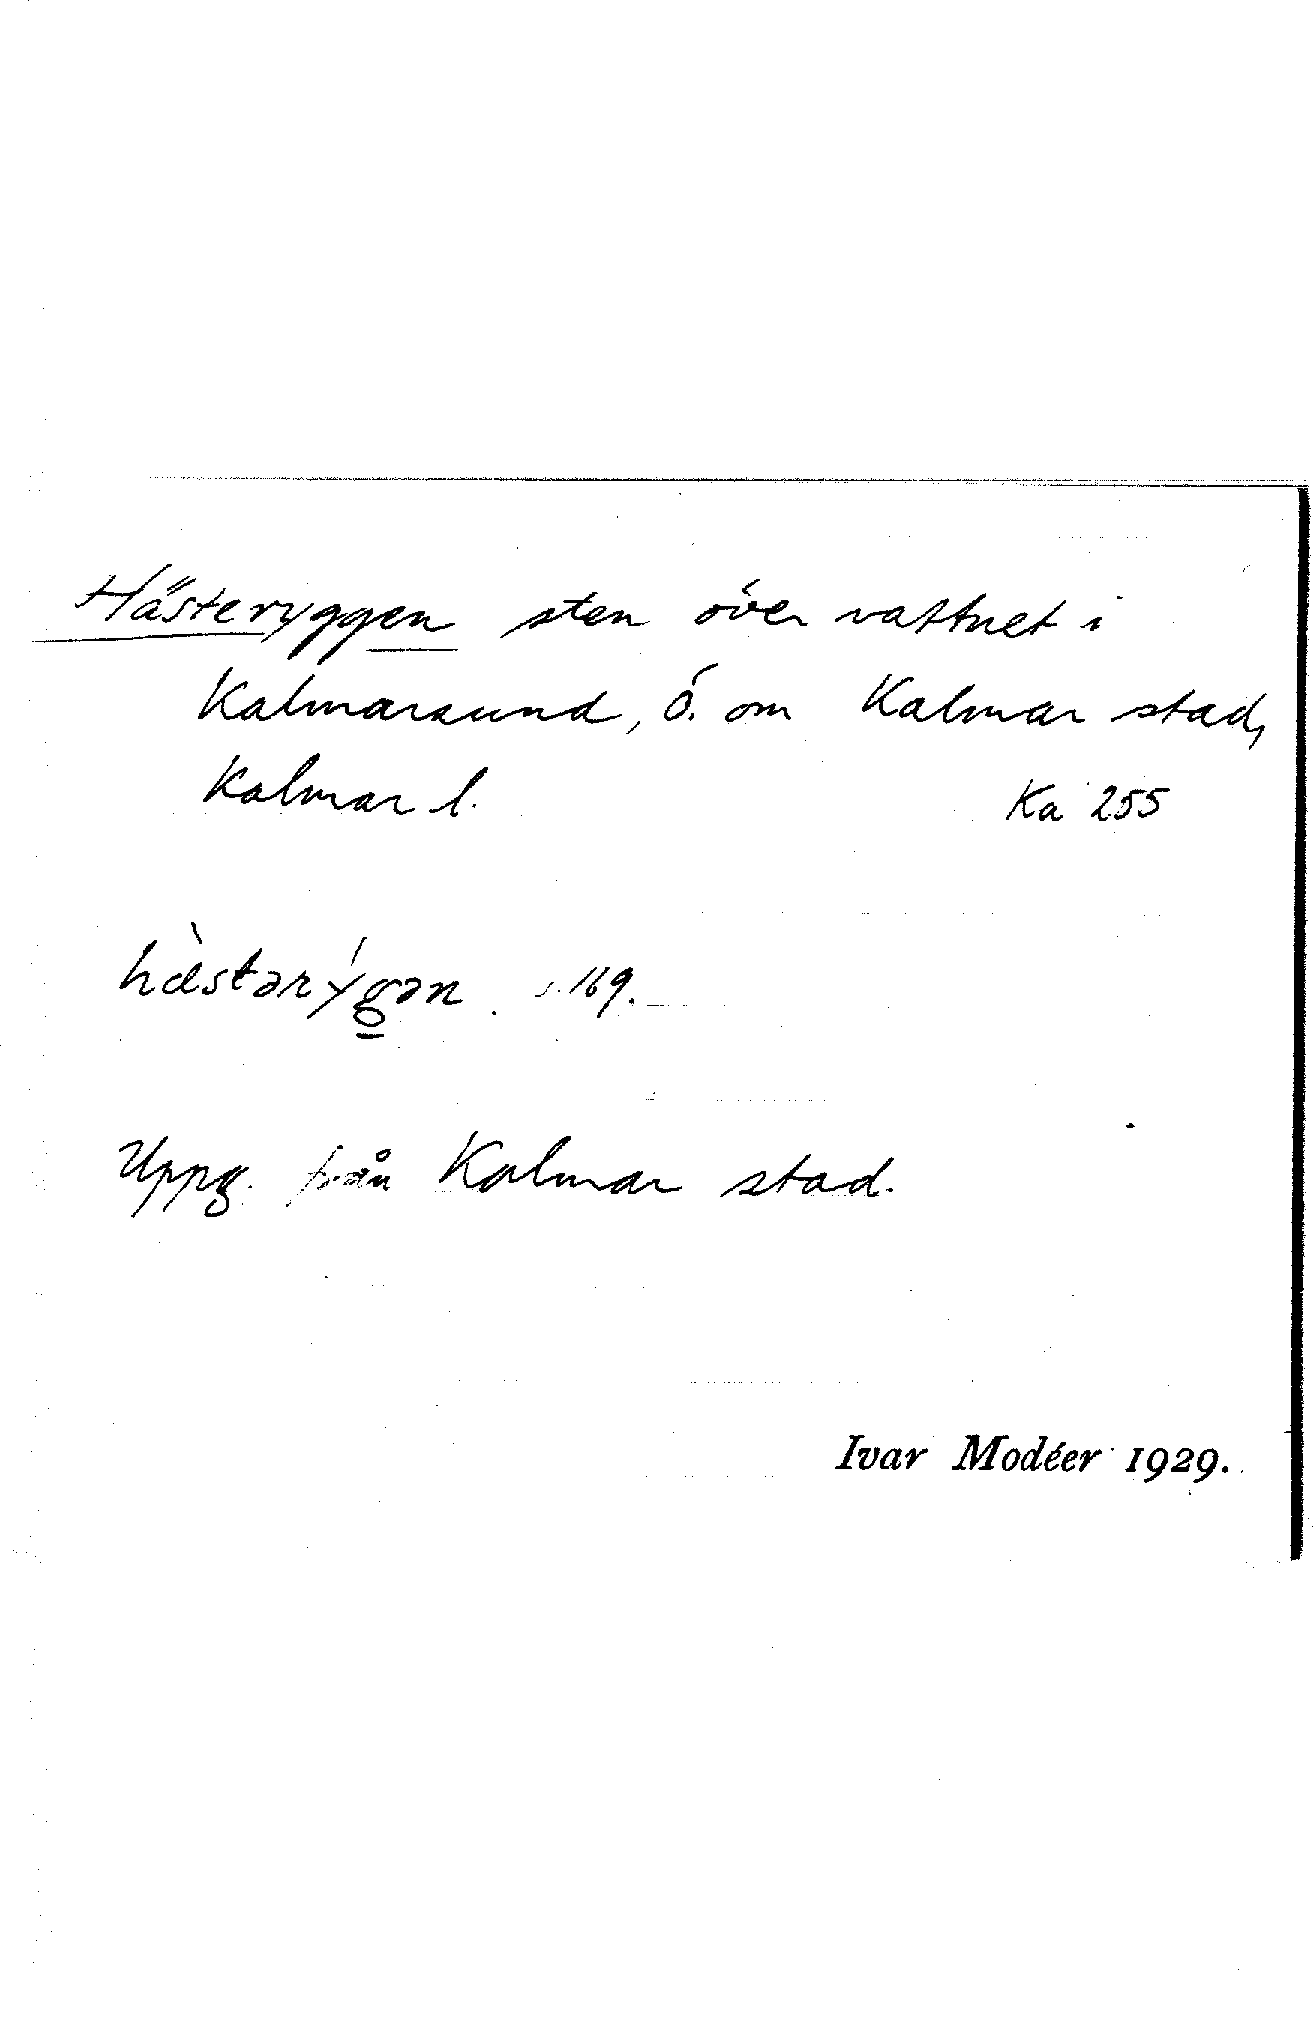 Hästeryggen sten över vattnet i
Kalmarsund, ö. om Kalmar stad,
Kalmar l. Ka 255
hæ̀stərýgən s. 169.
Uppg. från Kalmar stad.
Ivar Modéer 1929.